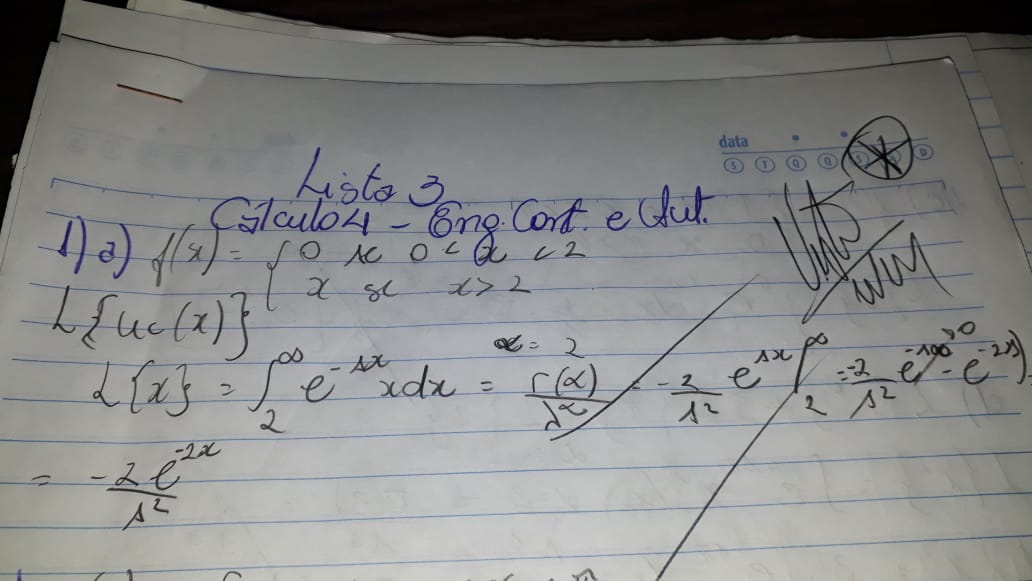 data
S T Q Q S D
Lista 3
Cálculo 4 - Eng. Cont. e Aut.
1) a) f(x) = { 0 se 0 < x < 2
x se x > 2
L{uc(x)}
α = 2
L{x} = ∫₂^∞ e^{-sx} x dx = Γ(α)/s^α = -2/s² e^{sx} |₂^∞ = -2/s² e^{-s∞} →0 - e^{-2s})
= -2e^{-2x}/s²